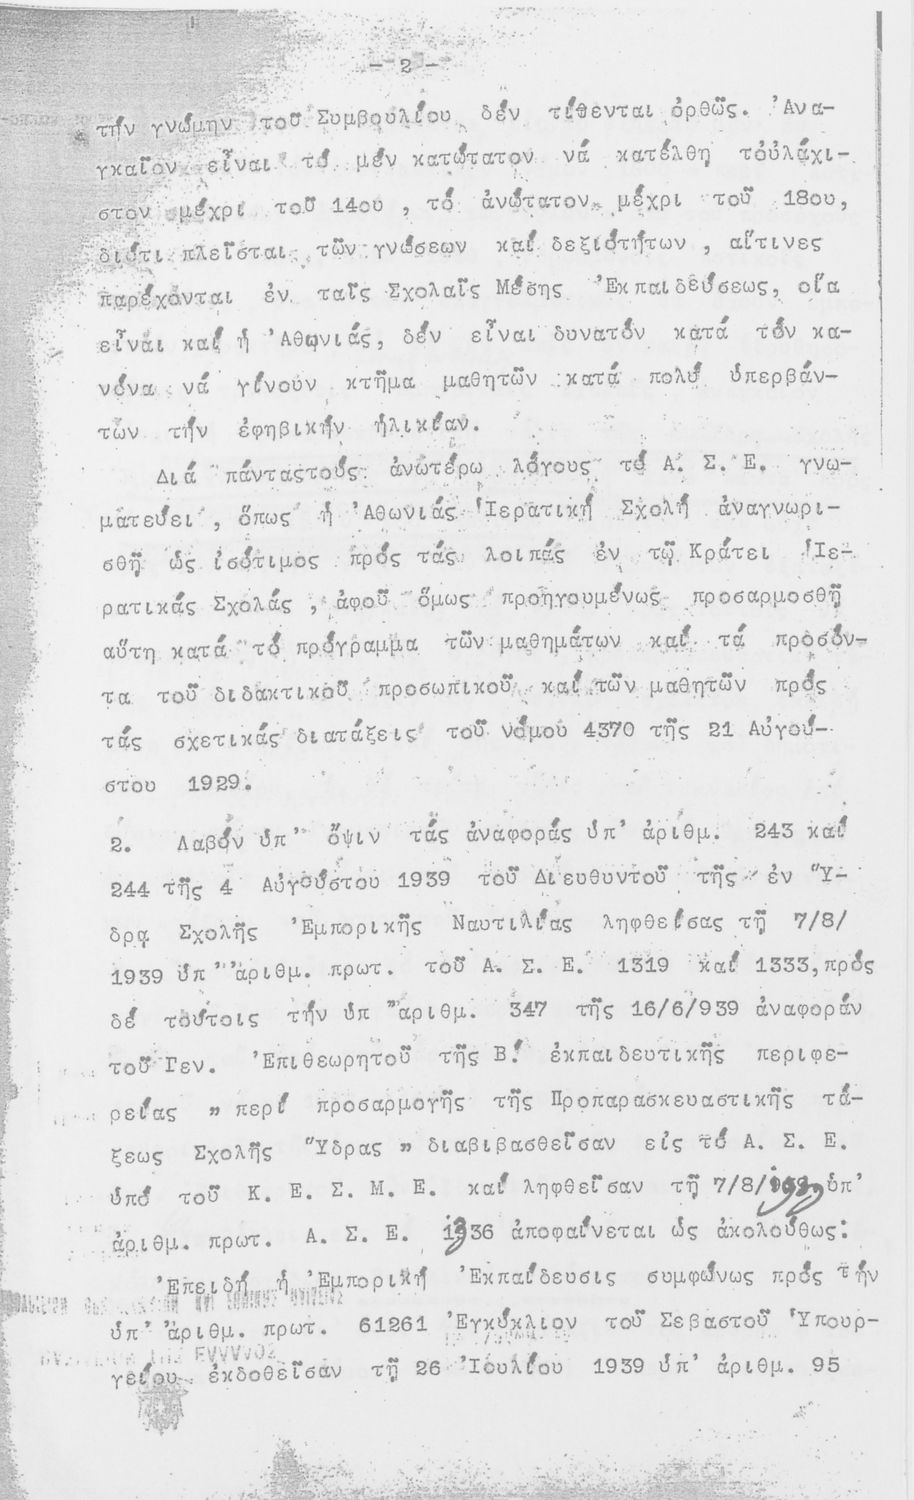 - 2 -
τήν γνώμην τοῦ Συμβουλίου δέν τίθενται ὀρθῶς. Ἀνα-
γκαῖον εἶναι τό μέν κατώτατον νά κατέλθη τοὐλάχι-
στον μέχρι τοῦ 14ου , τό ἀνώτατον μέχρι τοῦ 18ου,
διότι πλεῖσται τῶν γνώσεων καί δεξιοτήτων , αἵτινες
παρέχονται ἐν ταῖς Σχολαῖς Μέσης Ἐκπαιδεύσεως, οἵα
εἶναι καί ἡ Ἀθωνιάς, δέν εἶναι δυνατόν κατά τόν κα-
νόνα νά γίνουν κτῆμα μαθητῶν κατά πολύ ὑπερβάν-
των τήν ἐφηβικήν ἡλικίαν.
Διά πάνταςτούς ἀνωτέρω λόγους τό Α. Σ. Ε. γνω-
ματεύει , ὅπως ἡ Ἀθωνιάς Ἱερατική Σχολή ἀναγνωρι-
σθῆ ὡς ἰσότιμος πρός τάς λοιπάς ἐν τῷ Κράτει Ἱε-
ρατικάς Σχολάς , ἀφοῦ ὅμως προηγουμένως προσαρμοσθῆ
αὕτη κατά τό πρόγραμμα τῶν μαθημάτων καί τά προσόν-
τα τοῦ διδακτικοῦ προσωπικοῦ καί τῶν μαθητῶν πρός
τάς σχετικάς διατάξεις τοῦ νόμου 4370 τῆς 21 Αὐγού-
στου 1929.
2. Λαβόν ὑπ' ὄψιν τάς ἀναφοράς ὑπ' ἀριθμ. 243 καί
244 τῆς 4 Αὐγούστου 1939 τοῦ Διευθυντοῦ τῆς ἐν Ὕ-
δρᾳ Σχολῆς Ἐμπορικῆς Ναυτιλίας ληφθείσας τῇ 7/8/
1939 ὑπ' ἀριθμ. πρωτ. τοῦ Α. Σ. Ε. 1319 καί 1333,πρός
δέ τούτοις τήν ὑπ' ἀριθμ. 347 τῆς 16/6/939 ἀναφοράν
τοῦ Γεν. Ἐπιθεωρητοῦ τῆς Β! ἐκπαιδευτικῆς περιφε-
ρείας " περί προσαρμογῆς τῆς Προπαρασκευαστικῆς τά-
ξεως Σχολῆς Ὕδρας " διαβιβασθεῖσαν εἰς τό Α. Σ. Ε.
ὑπό τοῦ Κ. Ε. Σ. Μ. Ε. καί ληφθεῖσαν τῇ 7/8/ ὑπ'
ἀριθμ. πρωτ. Α. Σ. Ε. 1336 ἀποφαίνεται ὡς ἀκολούθως:
Ἐπειδή ἡ Ἐμπορική Ἐκπαίδευσις συμφώνως πρός τήν
ὑπ' ἀριθμ. πρωτ. 61261 Ἐγκύκλιον τοῦ Σεβαστοῦ Ὑπουρ-
γείου ἐκδοθεῖσαν τῇ 26 Ἰουλίου 1939 ὑπ' ἀριθμ. 95